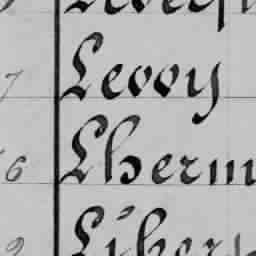 7 Leovy
6 Lherm
2 Liber